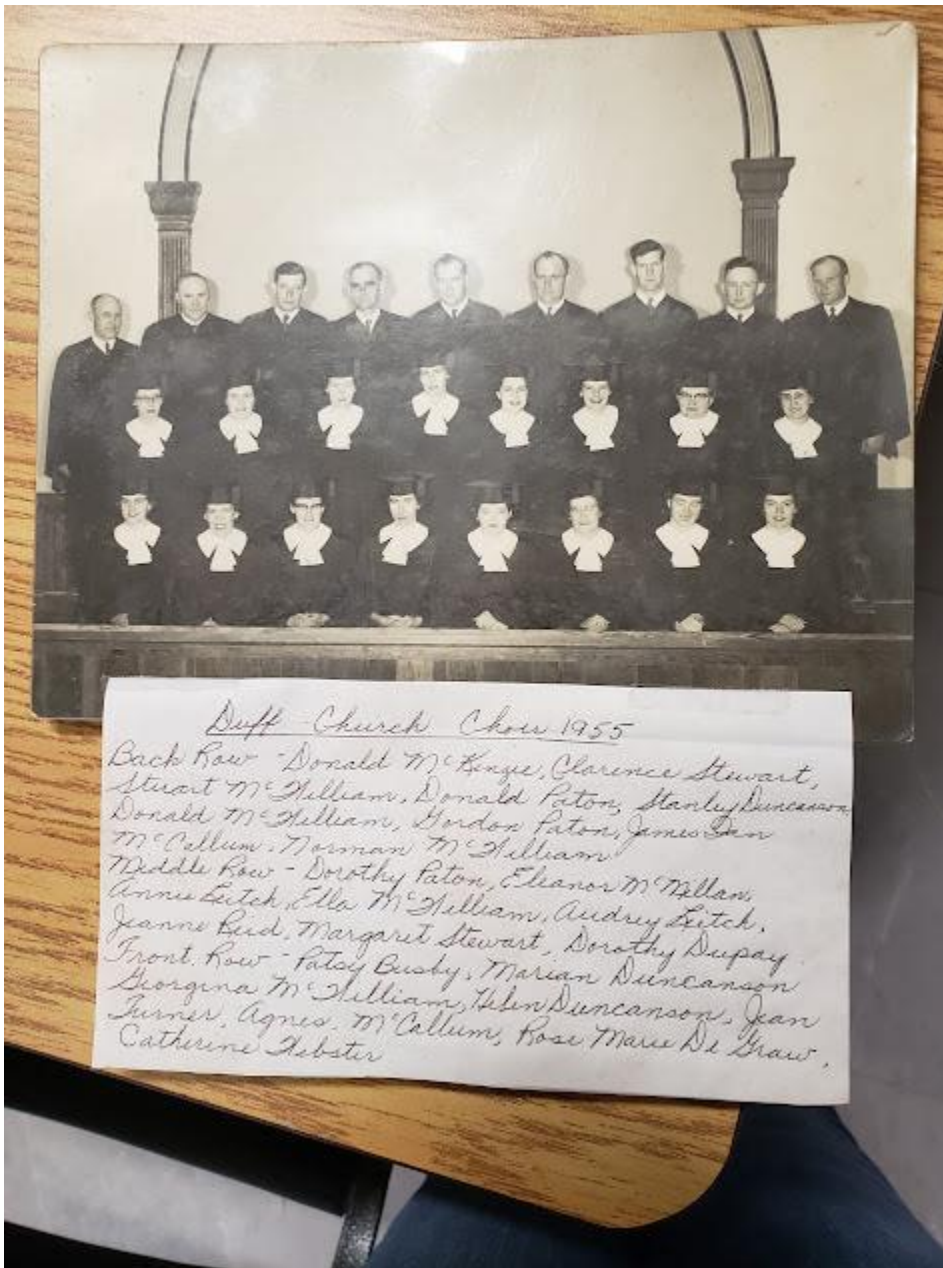 Duff Church Choir 1955
Back Row - Donald McKenzie, Clarence Stewart,
Stuart McWilliam, Donald Paton, Stanley Duncanson
Donald McWilliam, Gordon Paton, James Ian
McCallum. Norman McWilliam
Middle Row - Dorothy Paton, Eleanor McMillan,
Annie Leitch, Ella McWilliam, Audrey Leitch,
Jeanne Reid, Margaret Stewart, Dorothy Dupay.
Front Row - Patsy Busby, Marian Duncanson
Georgena McWilliam, Helen Duncanson, Jean
Turner, Agnes McCallum, Rose Marie De Graw,
Catherine Webster